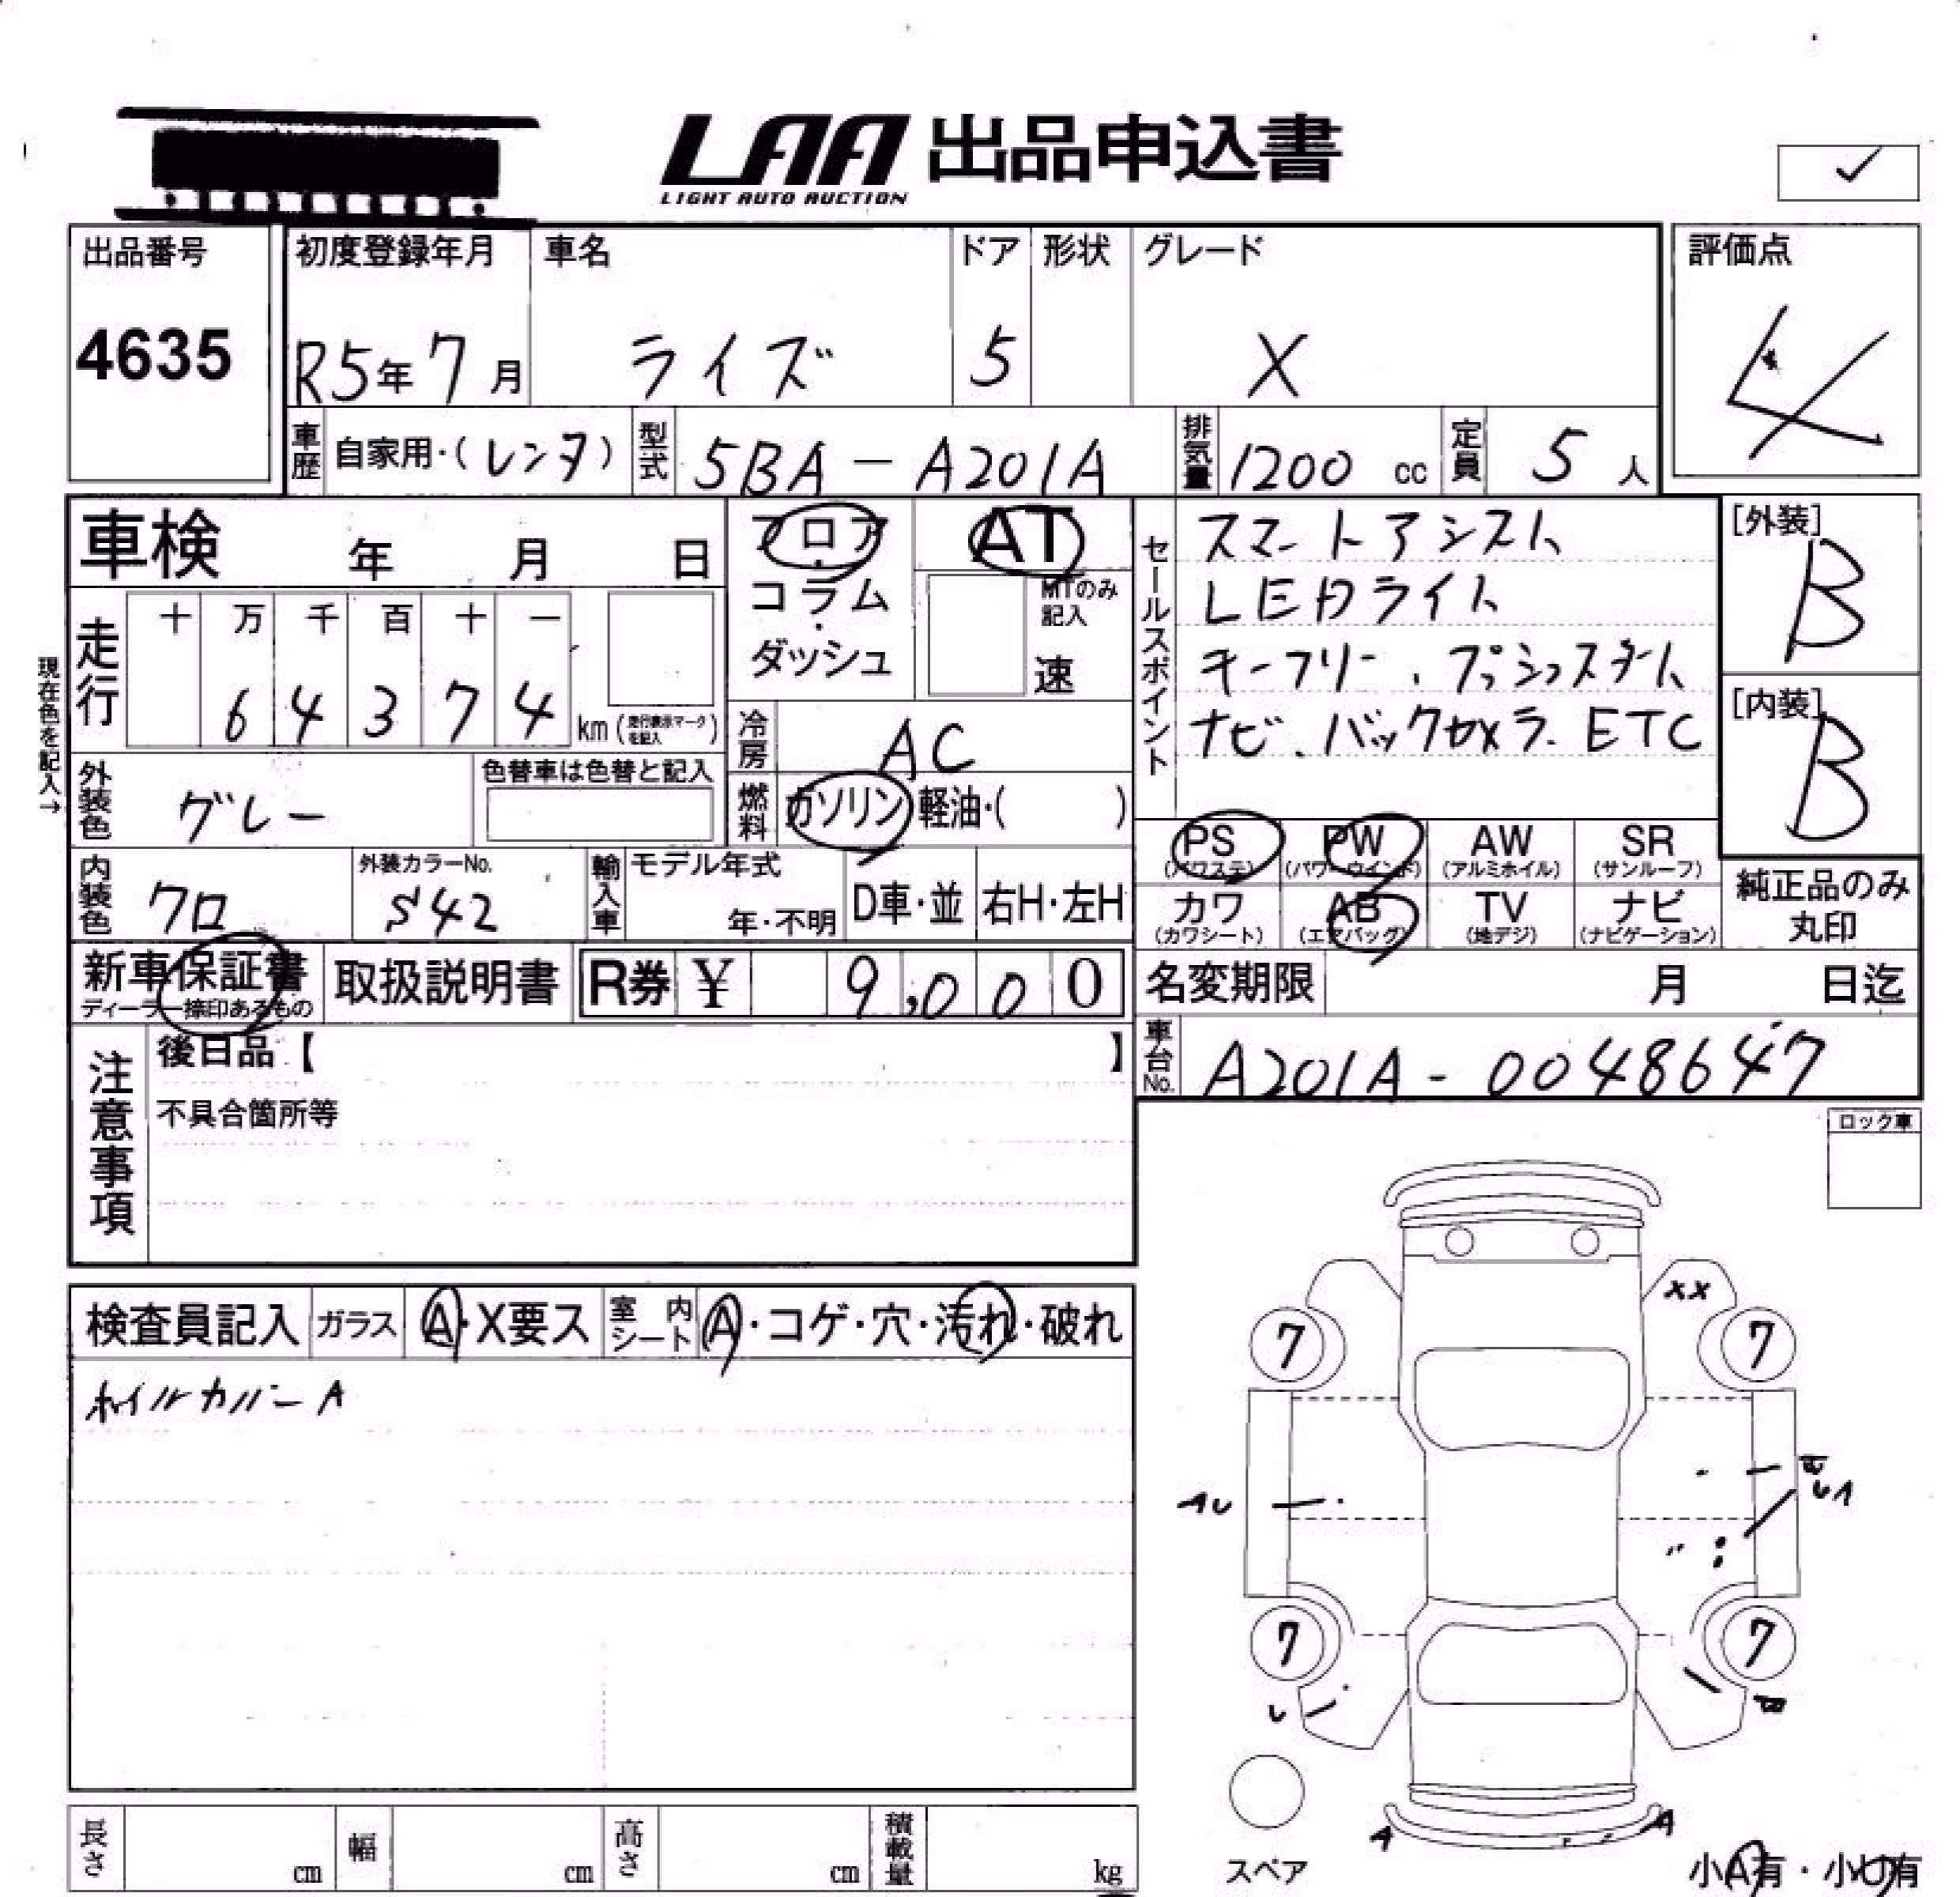 LAA 出品申込書
LIGHT AUTO AUCTION
出品番号 初度登録年月 車名 ドア 形状 グレード 評価点
4635 R5年7月 ライズ 5 X 4
車歴 自家用・(レンタ) 型式 5BA-A201A 排気量 1200 cc 定員 5 人
車検 年 月 日 フロア AT
コラム・ダッシュ MTのみ記入 速
セールスポイント
スマートアシスト
LEDライト
キーフリー、プッシュスタート
ナビ、バックカメラ、ETC
[外装] B
[内装] B
現在色を記入→
走行 十 万 千 百 十 一
64374 km (走行表示マークを記入)
冷房 AC
外装色 グレー 色替車は色替と記入
燃料 ガソリン 軽油・( )
PS (パワステ) PW (パワーウインド) AW (アルミホイル) SR (サンルーフ)
カワ (カワシート) AB (エアバッグ) TV (地デジ) ナビ (ナビゲーション)
純正品のみ丸印
内装色 クロ 外装カラーNo. S42 輸入車 モデル年式 年・不明 D車・並 右H・左H
新車保証書 ディーラー捺印あるもの 取扱説明書 R券 ¥ 9,000
名変期限 月 日迄
車台No. A201A-0048647
注意事項 後日品【 】
不具合箇所等
ロック車
検査員記入 ガラス A・X要ス 室内シート A・コゲ・穴・汚れ・破れ
ホイルカバーA
XX
7 7
7 7
A A
スペア
小A有・小U有
長さ cm 幅 cm 高さ cm 積載量 kg